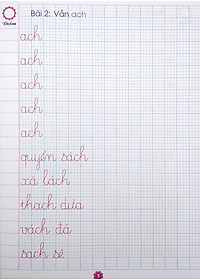 Bài 2: Vần ach
Điểm
ach
ach
ach
ach
ach
quyển sách
xà lách
thạch dừa
vách đá
sạch sẽ